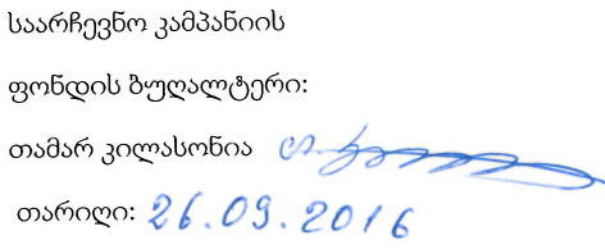 საარჩევნო კამპანიის
ფონდის ბუღალტერი:
თამარ კილასონია
თარიღი: 26.09.2016